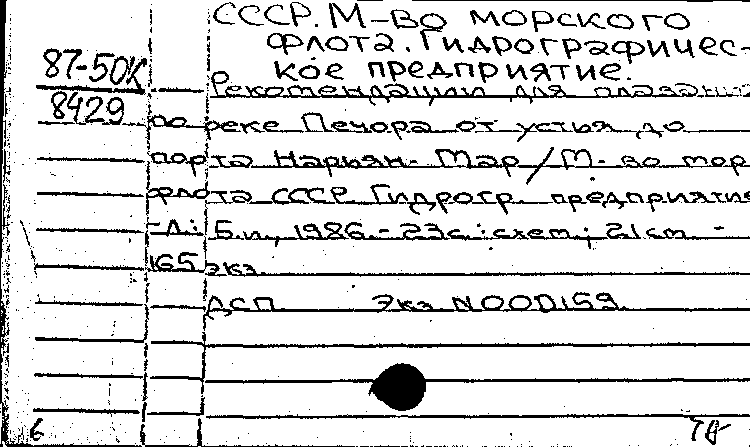 СССР. М-во морского
флота. Гидрографичес-
кое предприятие.
87-50К
8429
Рекомендации для плавания
по реке Печора от устья до
порта Нарьян-Мар/М-во мор
флота СССР. Гидрогр. предприятие
-Л.: Б.и., 1986.-23с.:схем; 21см -
165 экз.
ДСП Экз N000159.
6